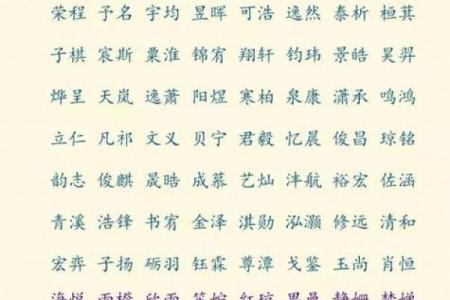 荣程 予名 宇均 昱晖 可浩 逸然 泰析 桓萁
子棋 宸斯 粟淮 锦宥 翔轩 钧玮 景皓 昊羿
烨呈 天岚 逸萧 阳煜 寒柏 泉康 潇承 鸣鸿
立仁 凡祁 文义 贝宁 君毅 忆晨 俊昌 琼铭
韵志 俊麒 晟晧 成慕 艺灿 沣航 裕宏 佐涵
青溪 浩锋 书宥 金泽 淇勋 泓灏 修远 清和
宏弈 子扬 砺羽 钰霖 尊潭 戈鉴 玉尚 肖恒
海悦 雨橙 欣雨 红琼 思曼 静姗